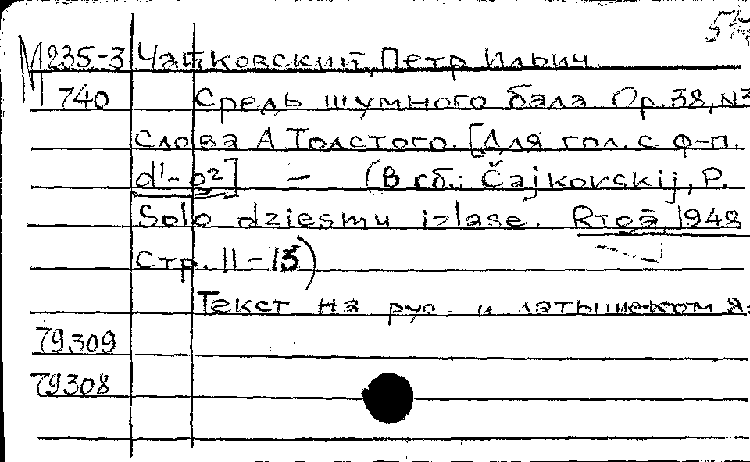 М235-3 Чайковский, Петр Ильич
740 Средь шумного бала Op. 38, N3
Слова А Толстого. [Для гол. с ф-п.
d¹-e²] – (В сб.: Čajkovskij, P.
Solo dziesmu izlase. Rīgā, 1948
Стр. 11-13)
Текст на рус. и латышском я
79309
79308